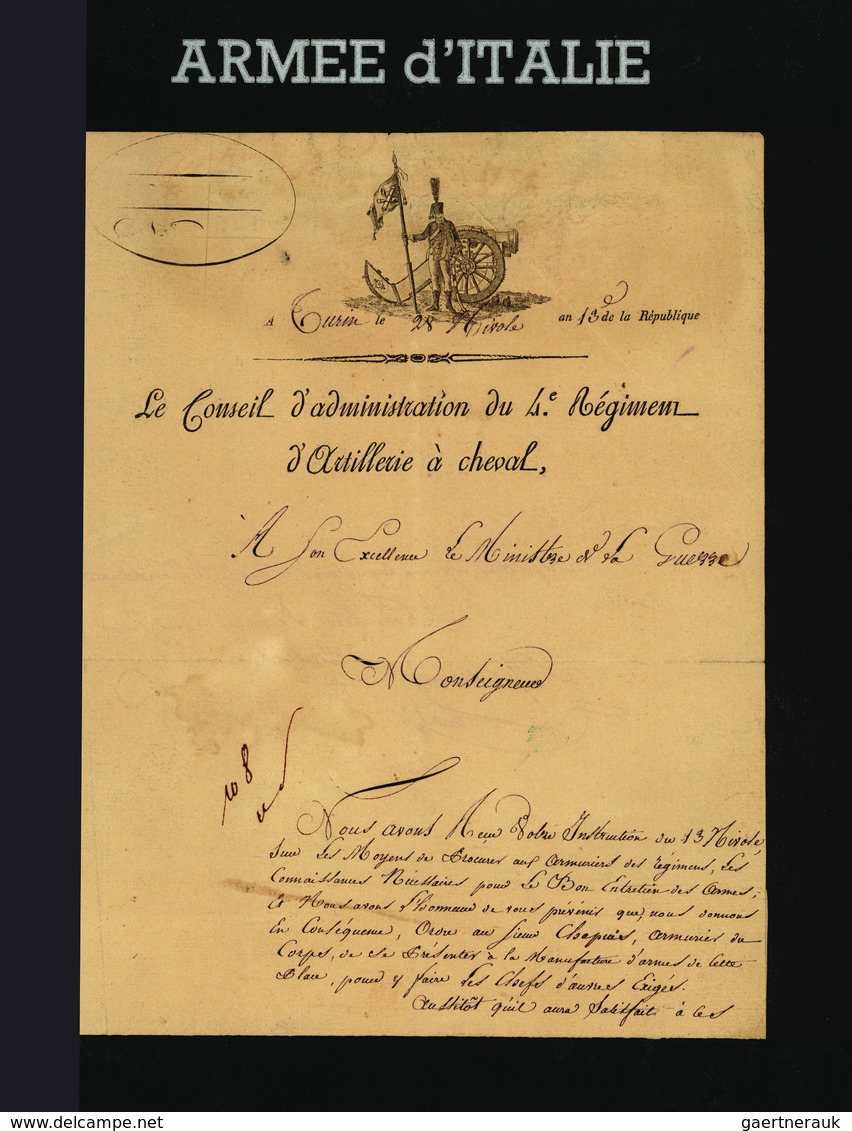 ARMEE d'ITALIE
A Turin le 28 Nivose an 13e de la République
Le Conseil d'administration du 4.e Régiment
d'Artillerie à cheval,
A Son Excellence Le Ministre de la Guerre
Monseigneur
108
Nous avons Reçu Votre Instruction du 13 Nivose,
Sur Les Moyens de Procurer aux armuriers des régimens, Les
Connaissances Nécessaires pour Le Bon Entretien des armes;
Et Nous avons l'honneur de vous prévenir que, nous donnons
En Conséquence, Ordre au Sieur Chapuis, armurier du
Corps, de se Présenter à la Manufacture d'armes de Cette
Place, pour y faire Les Chefs d'œuvres Exigés.
Aussitôt qu'il aura Satisfait à Ces
www.delcampe.net
gaertnerauk